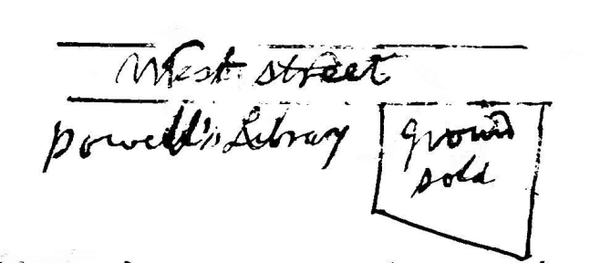 West street
Powell's Library
ground
sold